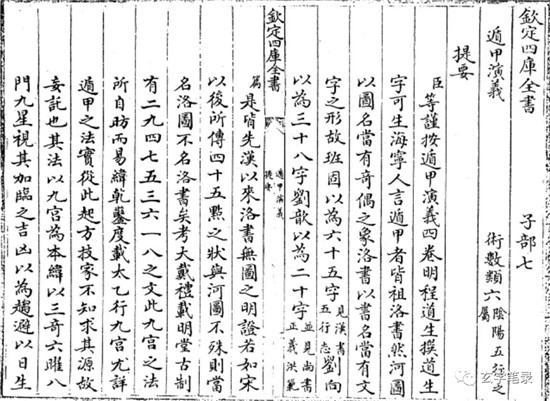 欽定四庫全書 子部七
遁甲演義 術數類六 陰陽五行之屬
提要
臣等謹按遁甲演義四卷明程道生撰道生
字可生海寧人言遁甲者皆祖洛書然河圖
以圖名當有奇偶之象洛書以書名當有文
字之形故班固以為六十五字 見漢書五行志 劉向
以為三十八字劉歆以為二十字 並見尚書正義洪範
欽定四庫全書
遁甲演義
提要
篇 是皆先漢以來洛書無圖之明證若如宋
以後所傳四十五點之狀與河圖不殊則當
名洛圖不名洛書矣考大戴禮載明堂古制
有二九四七五三六一八之文此九宮之法
所自昉而易緯乾鑿度載太乙行九宮尤詳
遁甲之法實從此起方技家不知求其源故
妄託也其法以九宮為本緯以三奇六曜八
門九星視其加臨之吉凶以為趨避以日生
玄学笔录